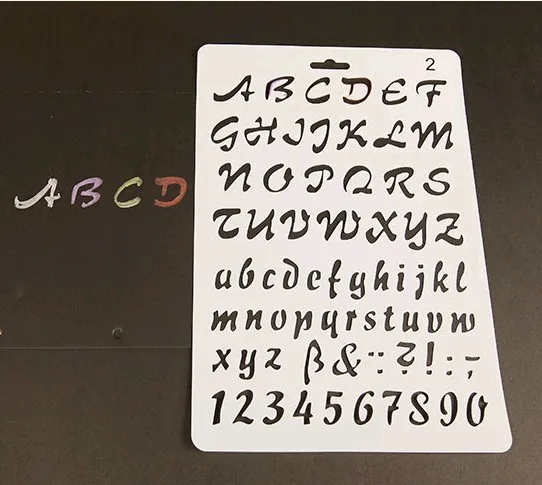 2
ABCDEF
GHIJKLM
NOPQRS
TUVWXYZ
ABCD
abcdefghijkl
mnopqrstuvw
xyz ß&¨?!:;
1234567890